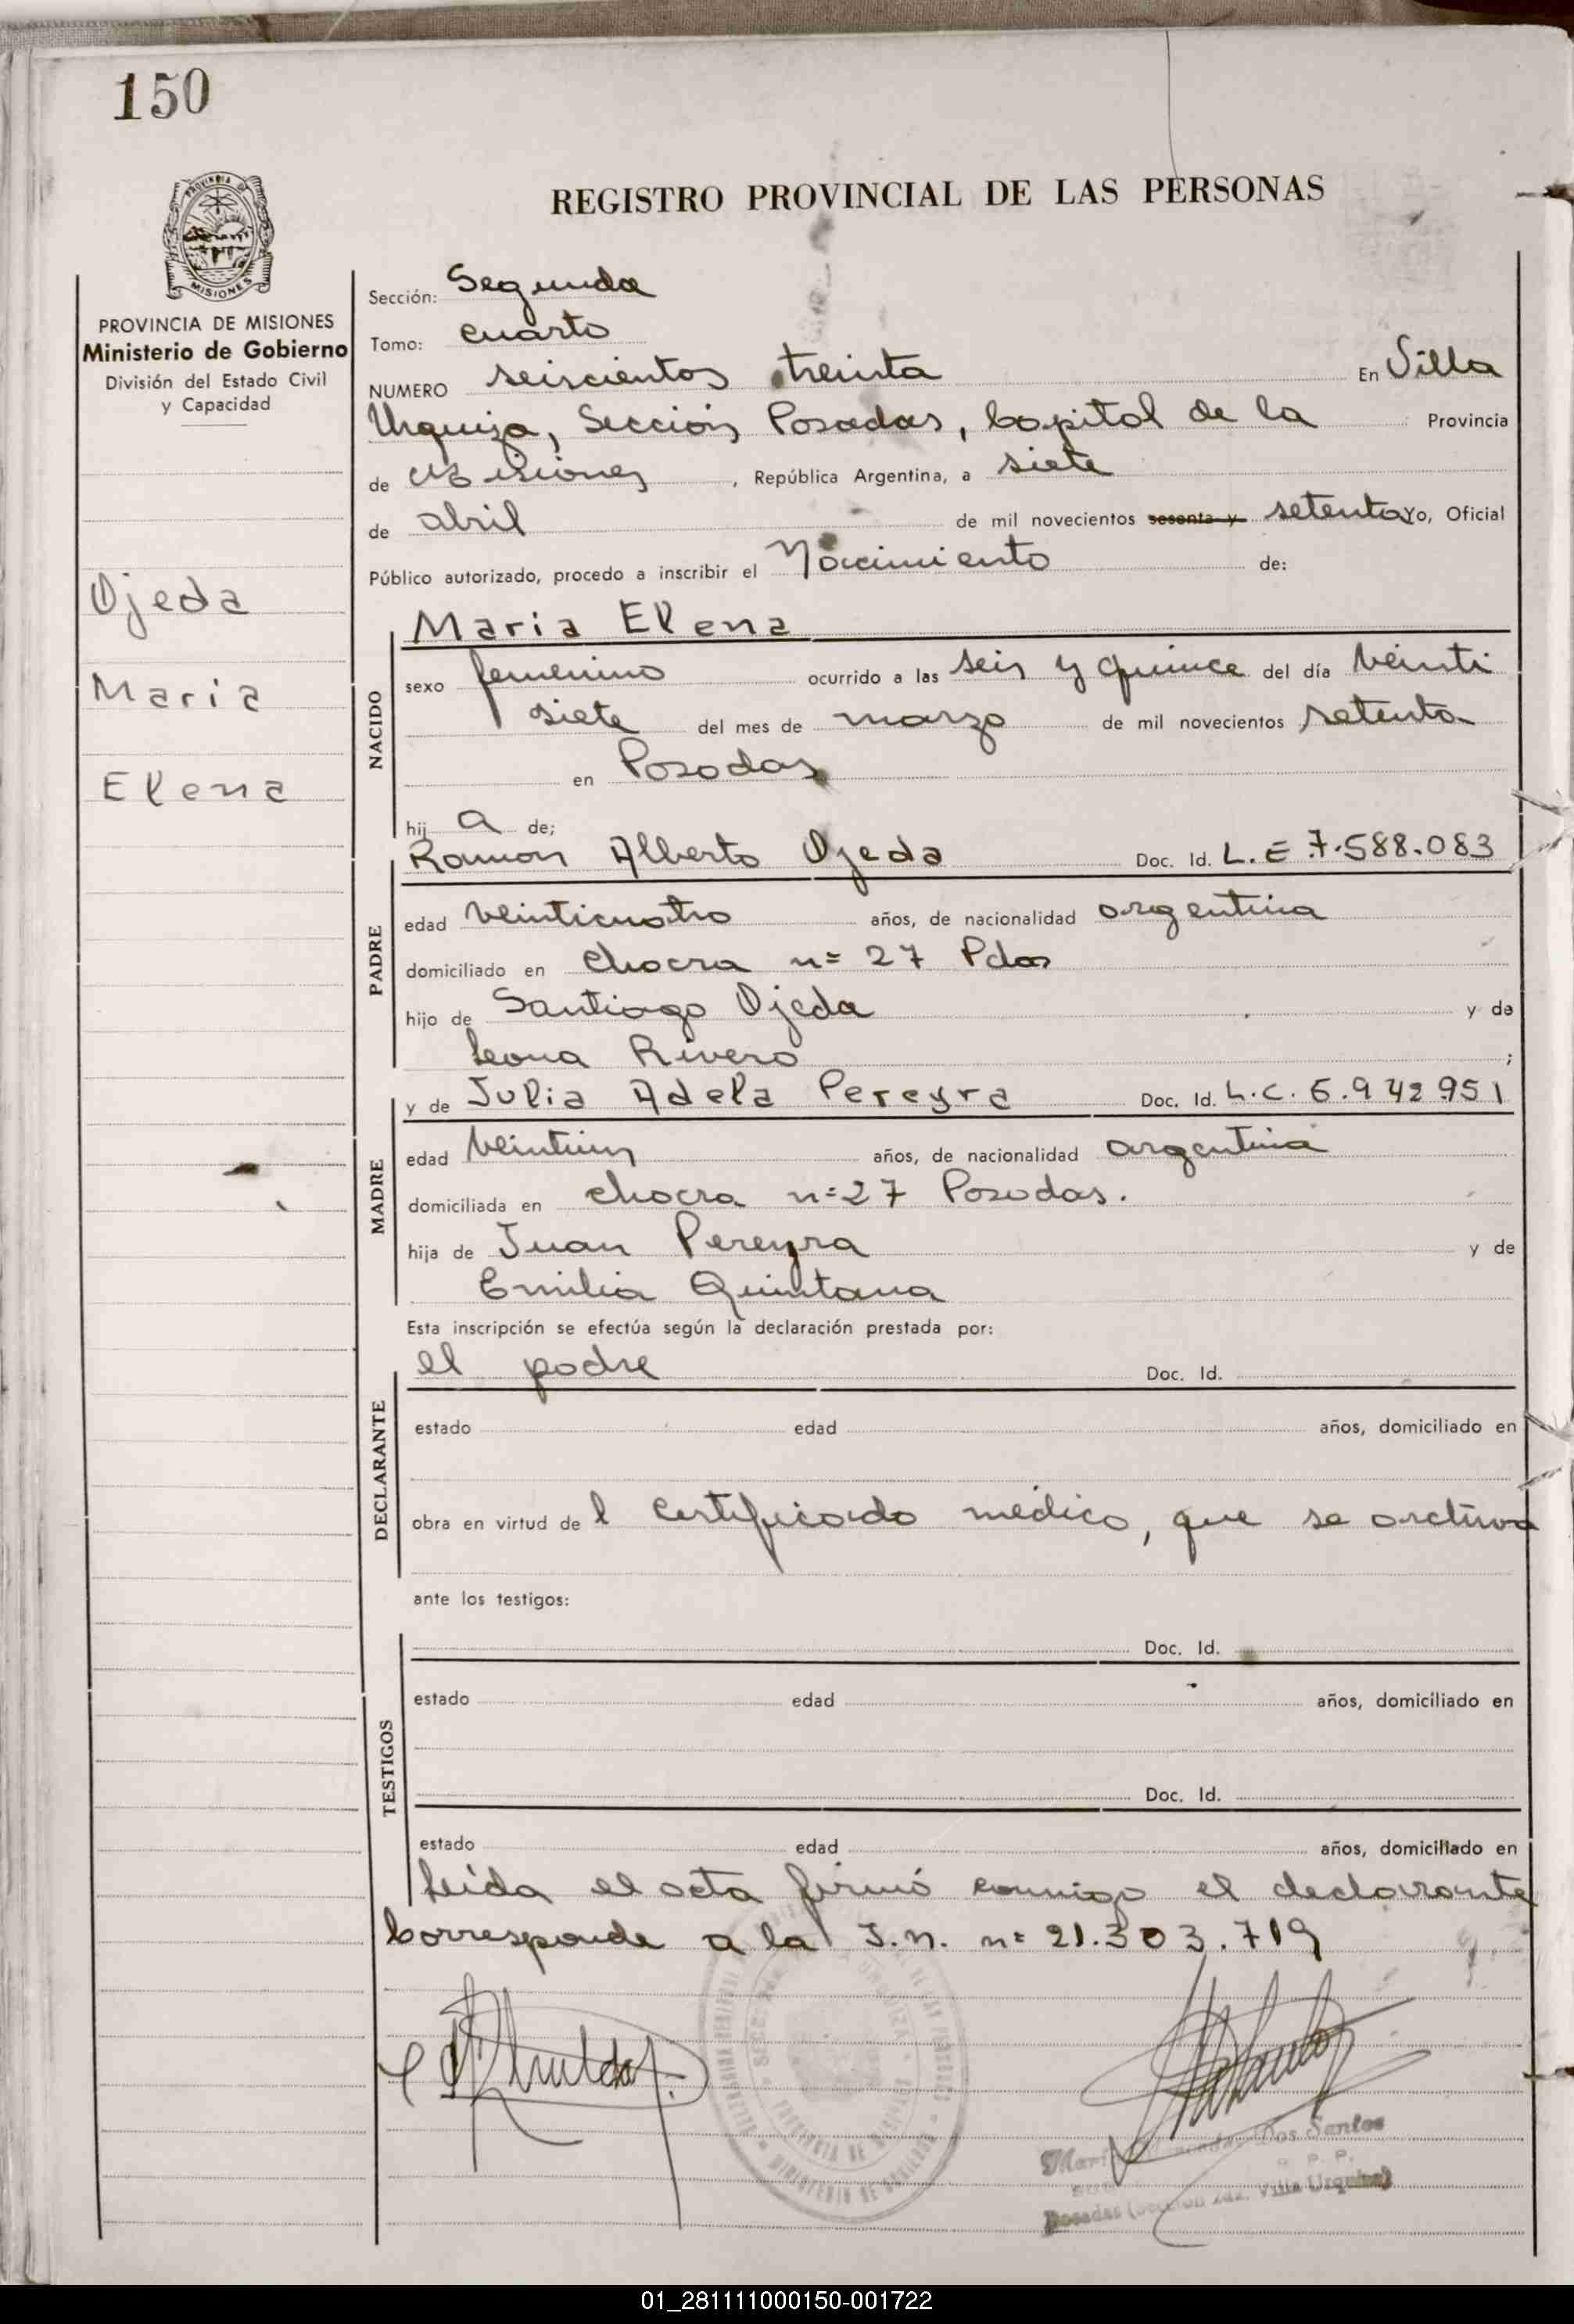 150
PROVINCIA DE MISIONES
MISIONES
PROVINCIA DE MISIONES
Ministerio de Gobierno
División del Estado Civil
y Capacidad
Ojeda
Maria
Elena
REGISTRO PROVINCIAL DE LAS PERSONAS
Sección: Segunda
Tomo: cuarto
NUMERO seiscientos treinta En Villa
Urquiza, Sección Posadas, Capital de la Provincia
de Misiones, República Argentina, a siete
de abril de mil novecientos sesenta y setenta Yo, Oficial
Público autorizado, procedo a inscribir el Nacimiento de:
NACIDO
Maria Elena
sexo femenino ocurrido a las seis y quince del día veinti
siete del mes de marzo de mil novecientos setenta
en Posadas
hij a de;
PADRE
Ramon Alberto Ojeda Doc. Id. L.E 7.588.083
edad veinticuatro años, de nacionalidad argentina
domiciliado en chacra n= 27 Pdas
hijo de Santiago Ojeda y de
Leona Rivero ;
MADRE
y de Julia Adela Pereyra Doc. Id. L.C. 6.942951
edad veintiun años, de nacionalidad argentina
domiciliada en chacra n=27 Posadas.
hija de Juan Pereyra y de
Emilia Quintana
Esta inscripción se efectúa según la declaración prestada por:
DECLARANTE
el padre Doc. Id.
estado edad años, domiciliado en
obra en virtud de l certificado médico, que se archiva
ante los testigos:
TESTIGOS
Doc. Id.
estado edad años, domiciliado en
Doc. Id.
estado edad años, domiciliado en
Leida el acta firmó conmigo el declarante
Corresponde a la I.n. n= 21.303.719
Dos Santos
Posadas (Sección 2da. Villa Urquiza)
01_281111000150-001722